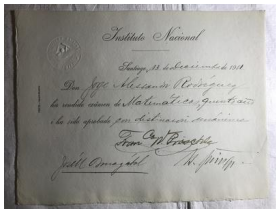 Instituto Nacional
Santiago, 23 de diciembre de 1911
Don José Alessandri Rodríguez
ha rendido exámen de Matemáticas, quinto año
i ha sido aprobado por distinción unánime
José M.